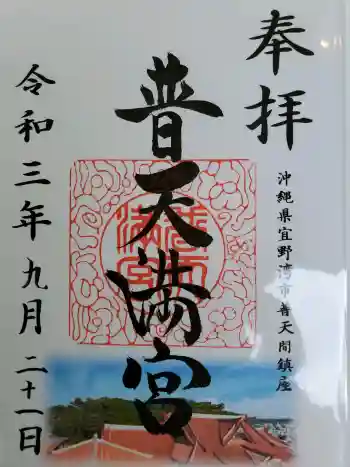 奉拝
沖縄県宜野湾市普天間鎮座
普天満宮
令和三年九月二十一日